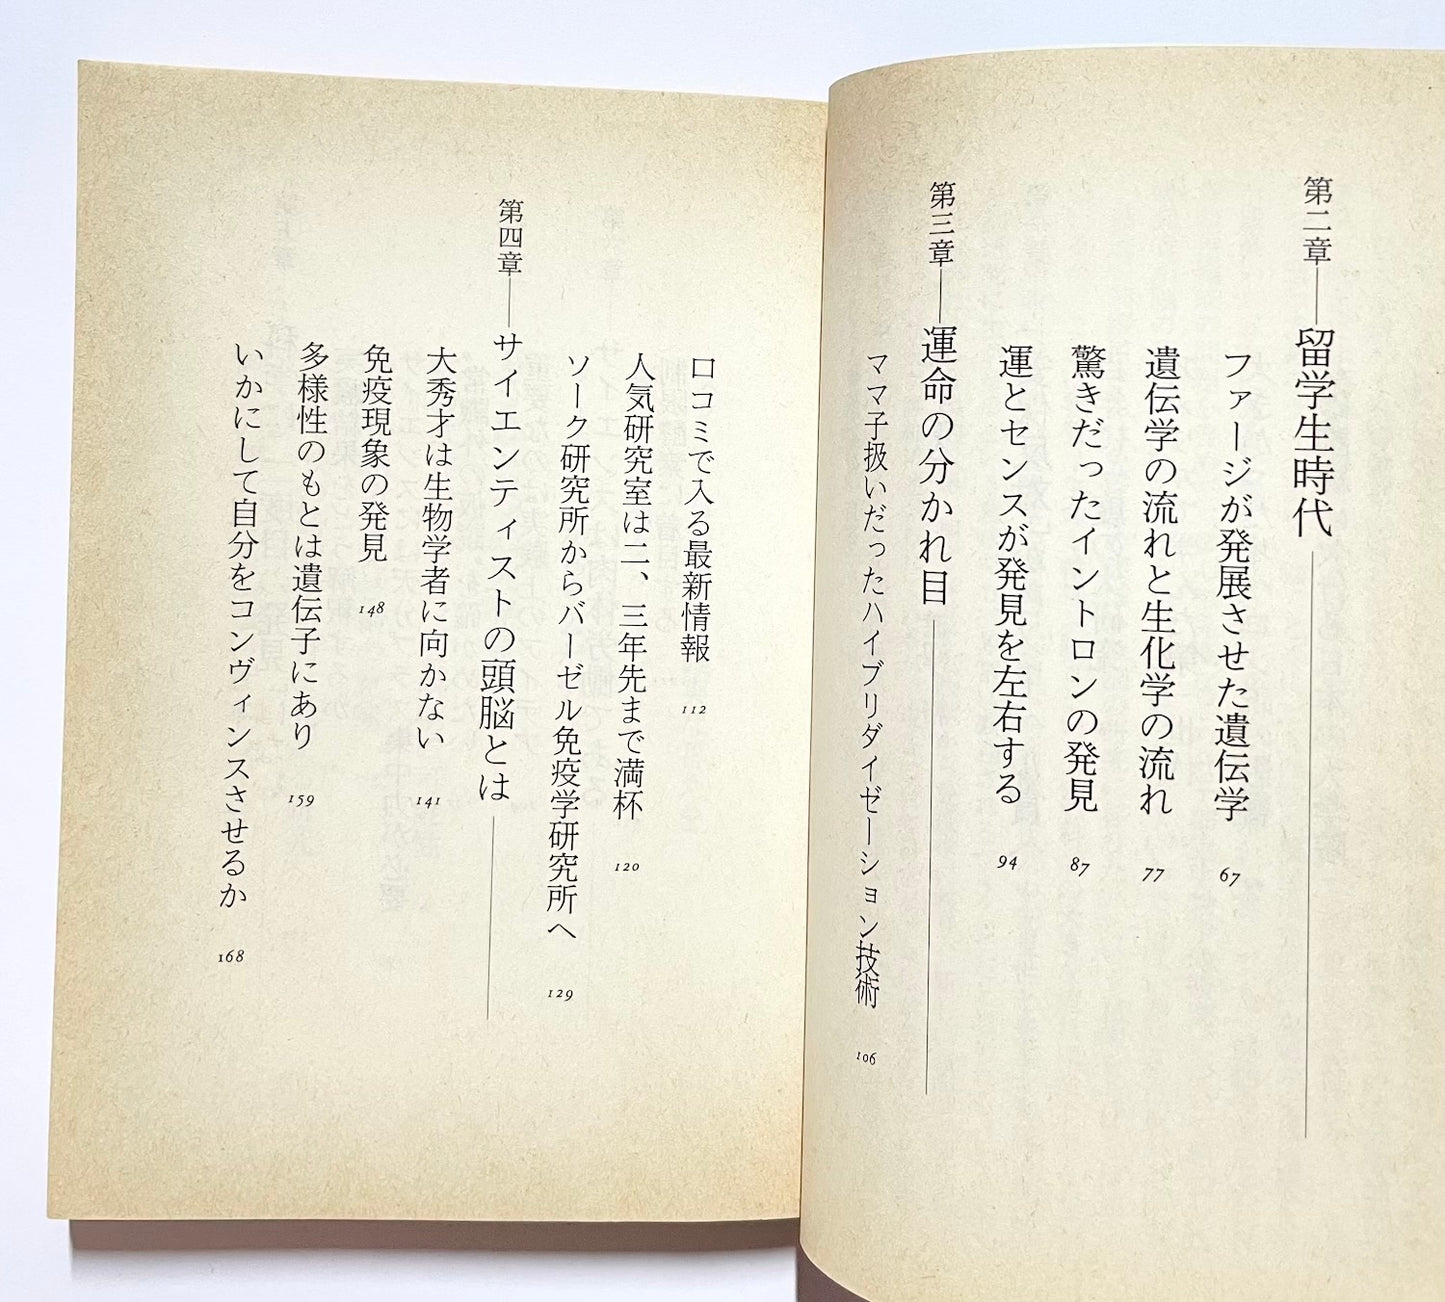 第二章――留学生時代
ファージが発展させた遺伝学 67
遺伝学の流れと生化学の流れ 77
驚きだったイントロンの発見 87
運とセンスが発見を左右する 94
第三章――運命の分かれ目
ママ子扱いだったハイブリダイゼーション技術 106
口コミで入る最新情報 112
人気研究室は二、三年先まで満杯 120
ソーク研究所からバーゼル免疫学研究所へ 129
第四章――サイエンティストの頭脳とは
大秀才は生物学者に向かない 141
免疫現象の発見 148
多様性のもとは遺伝子にあり 159
いかにして自分をコンヴィンスさせるか 168